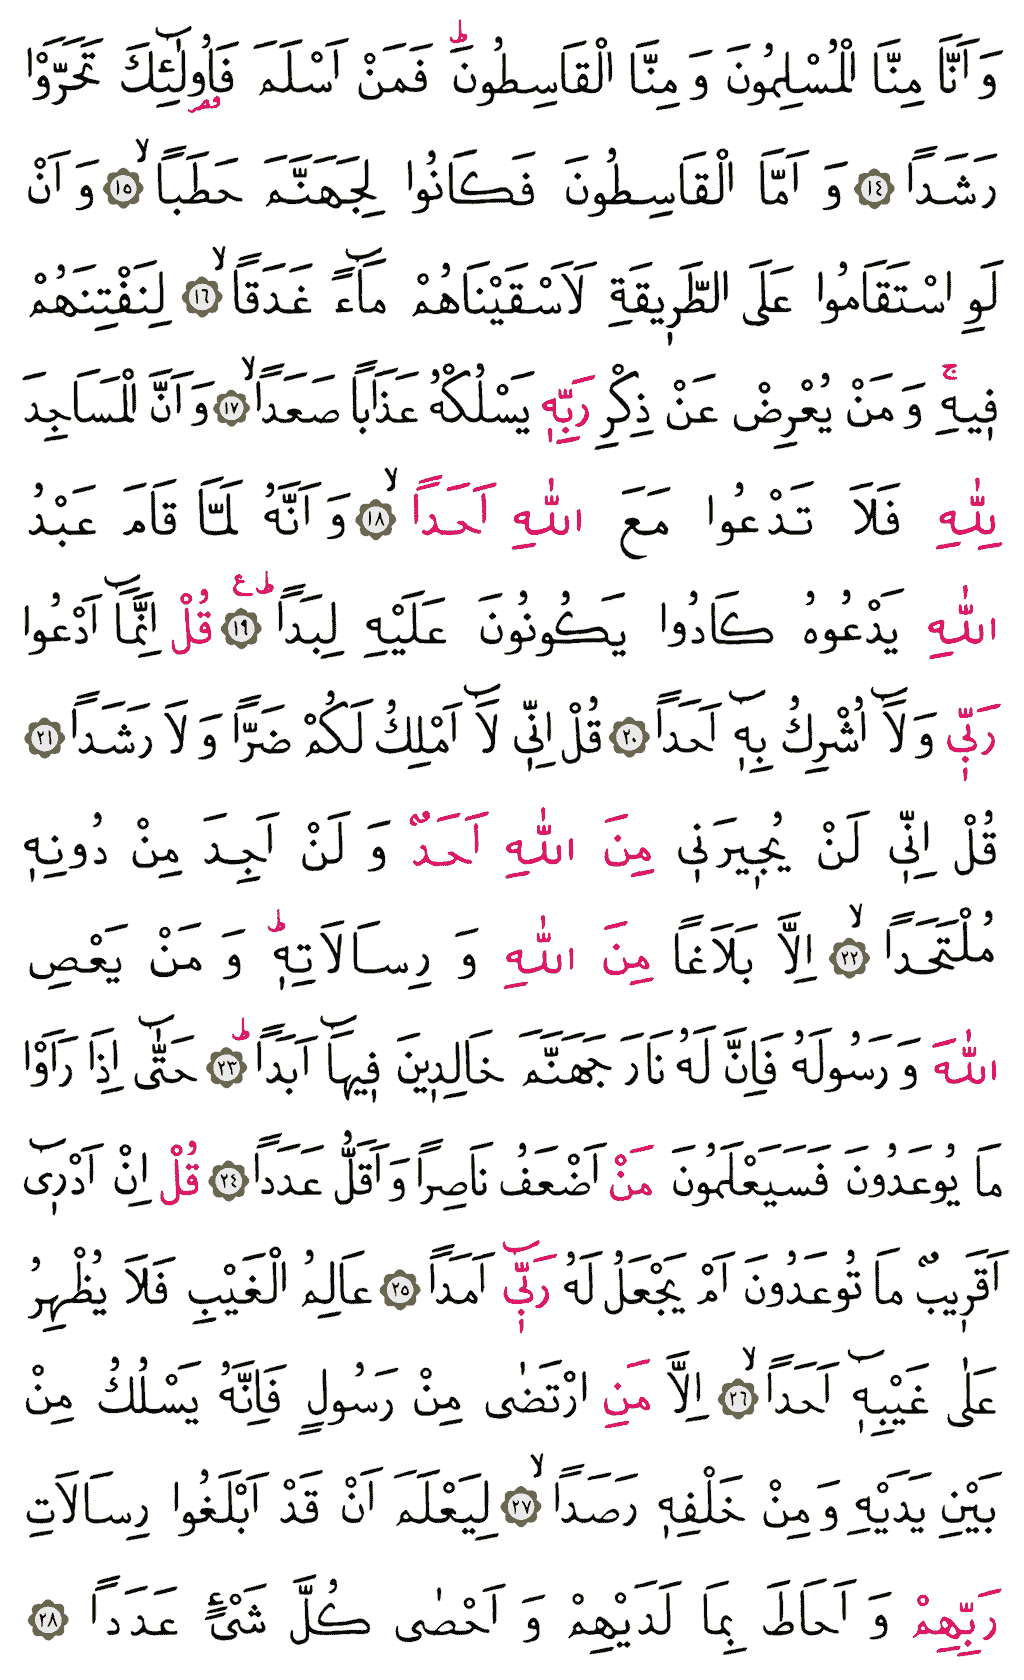 وَ اَنَّا مِنَّا الْمُسْلِمُونَ وَ مِنَّا الْقَاسِطُونَۜ فَمَنْ اَسْلَمَ فَاُو۬لٰٓئِكَ تَحَرَّوْا
رَشَداً ﴿١٤﴾ وَ اَمَّا الْقَاسِطُونَ فَكَانُوا لِجَهَنَّمَ حَطَباًۙ ﴿١٥﴾ وَ اَنْ
لَوِ اسْتَقَامُوا عَلَى الطَّرٖيقَةِ لَاَسْقَيْنَاهُمْ مَٓاءً غَدَقاًۙ ﴿١٦﴾ لِنَفْتِنَهُمْ
فٖيهِۚ وَ مَنْ يُعْرِضْ عَنْ ذِكْرِ رَبِّهٖ يَسْلُكْهُ عَذَاباً صَعَداًۙ ﴿١٧﴾ وَ اَنَّ الْمَسَاجِدَ
لِلّٰهِ فَلَا تَدْعُوا مَعَ اللّٰهِ اَحَداًۙ ﴿١٨﴾ وَ اَنَّهُ لَمَّا قَامَ عَبْدُ
اللّٰهِ يَدْعُوهُ كَادُوا يَكُونُونَ عَلَيْهِ لِبَداًؕ ع ﴿١٩﴾ قُلْ اِنَّمَٓا اَدْعُوا
رَبّٖي وَلَٓا اُشْرِكُ بِهٖٓ اَحَداً ﴿٢٠﴾ قُلْ اِنّٖي لَٓا اَمْلِكُ لَكُمْ ضَرّاً وَ لَا رَشَداً ﴿٢١﴾
قُلْ اِنّٖي لَنْ يُجٖيرَنٖي مِنَ اللّٰهِ اَحَدٌ وَ لَنْ اَجِدَ مِنْ دُونِهٖ
مُلْتَحَداًۙ ﴿٢٢﴾ اِلَّا بَلَاغاً مِنَ اللّٰهِ وَ رِسَالَاتِهٖؕ وَ مَنْ يَعْصِ
اللّٰهَ وَ رَسُولَهُ فَاِنَّ لَهُ نَارَ جَهَنَّمَ خَالِدٖينَ فٖيهَٓا اَبَداًؕ ﴿٢٣﴾ حَتّٰٓى اِذَا رَاَوْا
مَا يُوعَدُونَ فَسَيَعْلَمُونَ مَنْ اَضْعَفُ نَاصِراً وَ اَقَلُّ عَدَداً ﴿٢٤﴾ قُلْ اِنْ اَدْرٖٓى
اَقَرٖيبٌ مَا تُوعَدُونَ اَمْ يَجْعَلُ لَهُ رَبّٖٓي اَمَداً ﴿٢٥﴾ عَالِمُ الْغَيْبِ فَلَا يُظْهِرُ
عَلٰى غَيْبِهٖٓ اَحَداًۙ ﴿٢٦﴾ اِلَّا مَنِ ارْتَضٰى مِنْ رَسُولٍ فَاِنَّهُ يَسْلُكُ مِنْ
بَيْنِ يَدَيْهِ وَ مِنْ خَلْفِهٖ رَصَداًۙ ﴿٢٧﴾ لِيَعْلَمَ اَنْ قَدْ اَبْلَغُوا رِسَالَاتِ
رَبِّهِمْ وَ اَحَاطَ بِمَا لَدَيْهِمْ وَ اَحْصٰى كُلَّ شَىْءٍ عَدَداً ﴿٢٨﴾